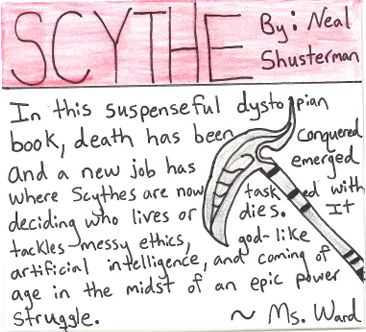 SCYTHE
By: Neal
Shusterman
In this suspenseful dystopian
book, death has been conquered
and a new job has emerged
where Scythes are now tasked with
deciding who lives or dies. It
tackles messy ethics, god-like
artificial intelligence, and coming of
age in the midst of an epic power
struggle. ~ Ms. Ward